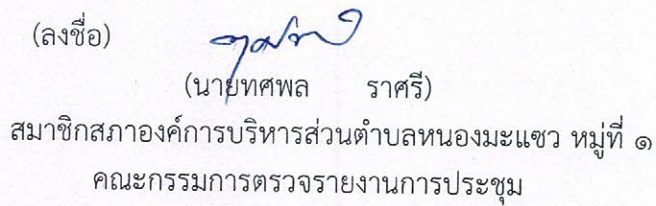 (ลงชื่อ)
(นายทศพล ราศรี)
สมาชิกสภาองค์การบริหารส่วนตำบลหนองมะแซว หมู่ที่ ๑
คณะกรรมการตรวจรายงานการประชุม